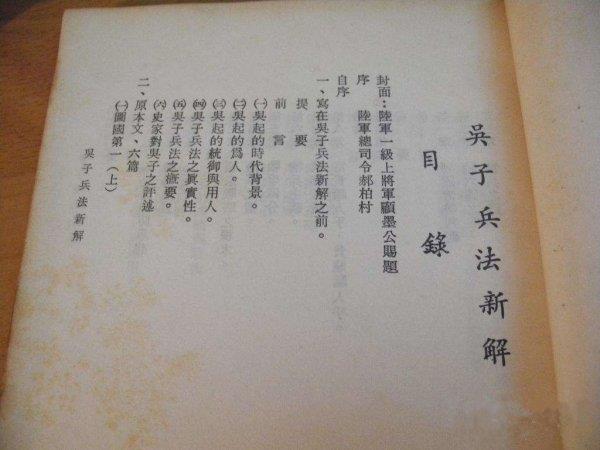 吳子兵法新解
目錄
封面：陸軍一級上將軍顧墨公賜題
序　陸軍總司令郝柏村
自序
一、寫在吳子兵法新解之前。
提　要
前　言
㈠吳起的時代背景。
㈡吳起的爲人。
㈢吳起的統御與用人。
㈣吳子兵法之眞實性。
㈤吳子兵法之概要。
㈥史家對吳子之評述
二、原本文、六篇
㈠圖國第一（上）
吳子兵法新解